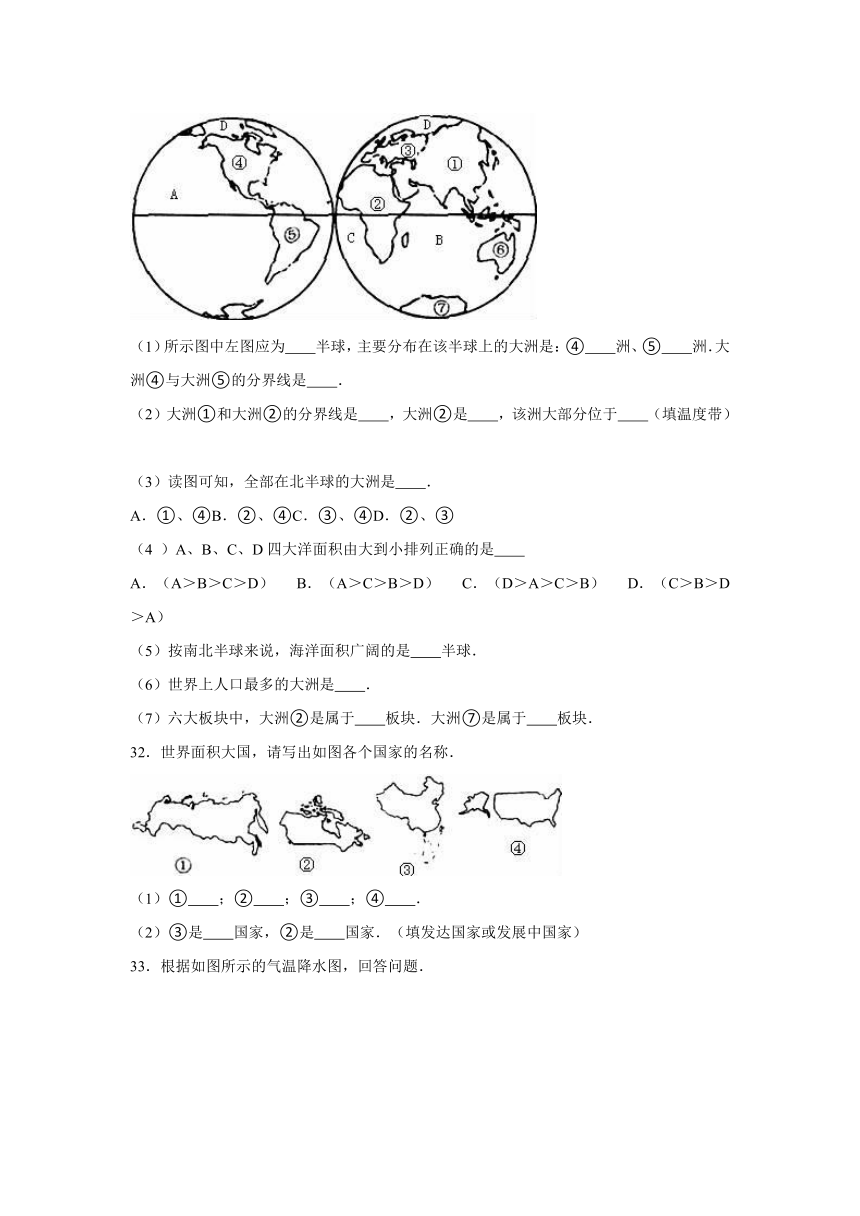 D D
④ ③ ①
A ②
⑤ C B ⑥
⑦
（1）所示图中左图应为____半球，主要分布在该半球上的大洲是：④____洲、⑤____ 洲．大
洲④与大洲⑤的分界线是____．
（2）大洲①和大洲②的分界线是____，大洲②是____，该洲大部分位于____（填温度带）
（3）读图可知，全部在北半球的大洲是____．
A．①、④B．②、④C．③、④D．②、③
（4 ）A、B、C、D 四大洋面积由大到小排列正确的是____
A．（A＞B＞C＞D） B．（A＞C＞B＞D） C．（D＞A＞C＞B） D．（C＞B＞D
＞A）
（5）按南北半球来说，海洋面积广阔的是____半球．
（6）世界上人口最多的大洲是____．
（7）六大板块中，大洲②是属于____板块．大洲⑦是属于____板块．
32．世界面积大国，请写出如图各个国家的名称．
① ② ③ ④
（1）①____；②____；③____；④____．
（2）③是____国家，②是____国家．（填发达国家或发展中国家）
33．根据如图所示的气温降水图，回答问题．